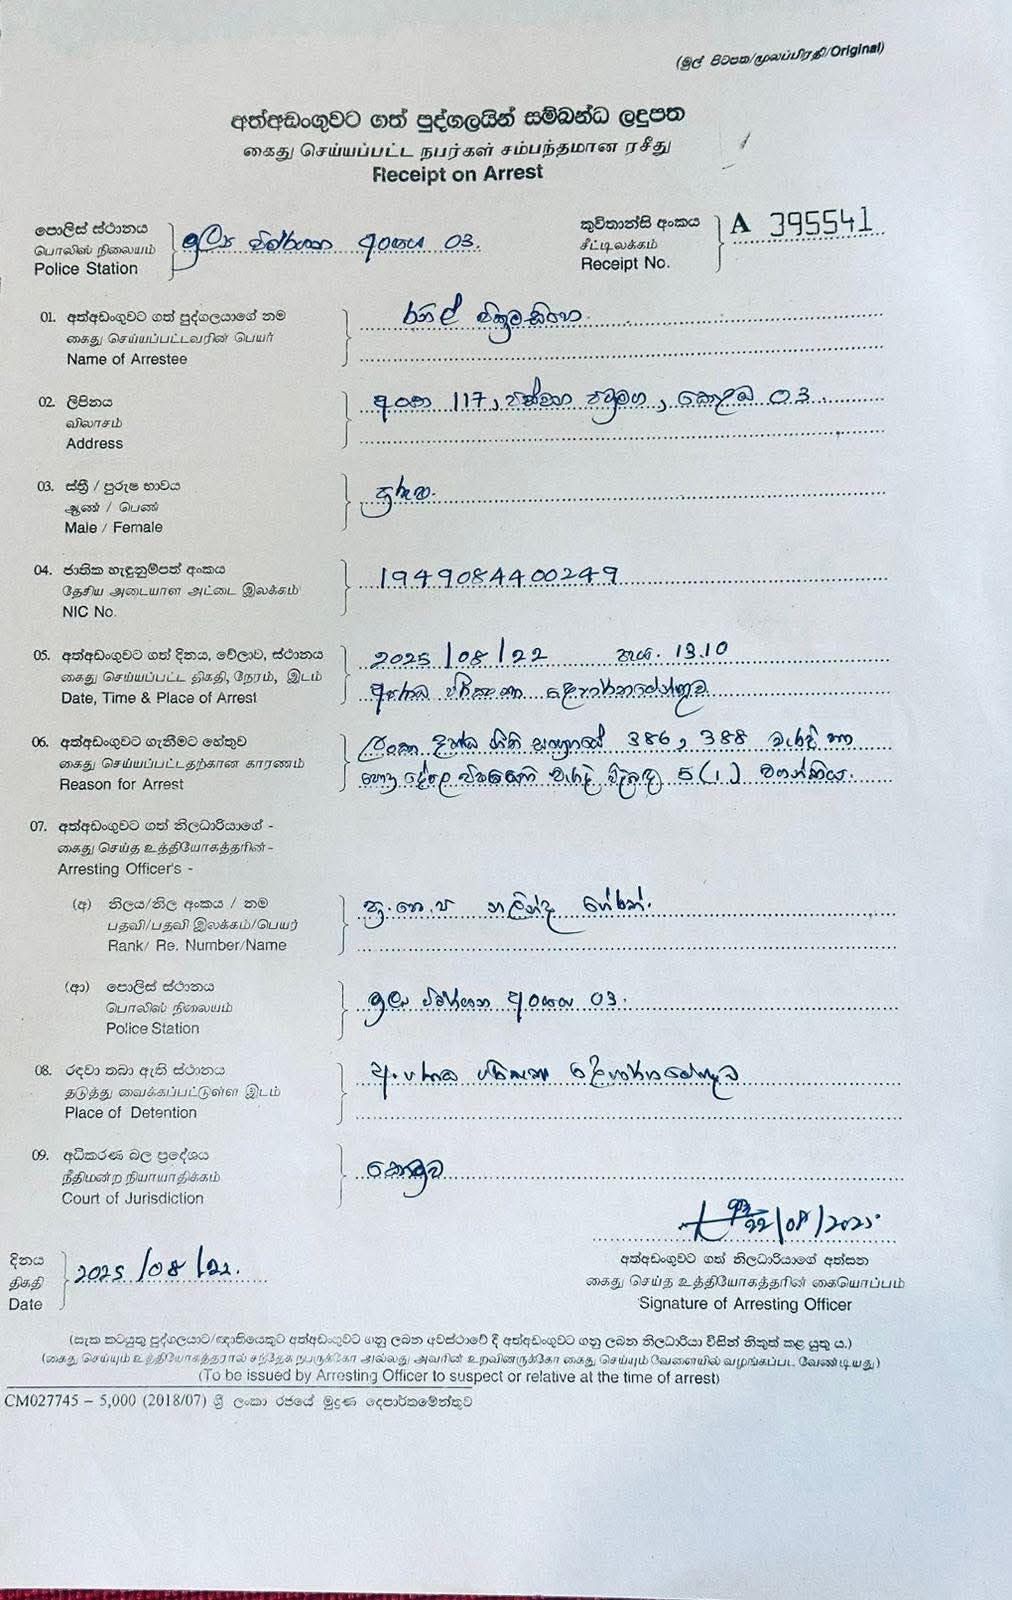 (මුල් පිටපත/மூலப்பிரதி/Original)
අත්අඩංගුවට ගත් පුද්ගලයින් සම්බන්ධ ලදුපත
கைது செய்யப்பட்ட நபர்கள் சம்பந்தமான ரசீது
Receipt on Arrest
පොලිස් ස්ථානය
பொலிஸ் நிலையம்
Police Station
මූල්‍ය විමර්ශන අංශය 03.
කුවිතාන්සි අංකය
சீட்டிலக்கம்
Receipt No.
A 395541
01. අත්අඩංගුවට ගත් පුද්ගලයාගේ නම
கைது செய்யப்பட்டவரின் பெயர்
Name of Arrestee
රනිල් වික්‍රමසිංහ
02. ලිපිනය
விலாசம்
Address
අංක 117, පස්වන පටුමග, කොළඹ 03.
03. ස්ත්‍රී / පුරුෂ භාවය
ஆண் / பெண்
Male / Female
පුරුෂ.
04. ජාතික හැඳුනුම්පත් අංකය
தேசிய அடையாள அட்டை இலக்கம்
NIC No.
194908400249
05. අත්අඩංගුවට ගත් දිනය, වේලාව, ස්ථානය
கைது செய்யப்பட்ட திகதி, நேரம், இடம்
Date, Time & Place of Arrest
2025/08/22 පැය. 13.10
අපරාධ පරීක්ෂණ දෙපාර්තමේන්තුව
06. අත්අඩංගුවට ගැනීමට හේතුව
கைது செய்யப்பட்டதற்கான காரணம்
Reason for Arrest
ලංකා දණ්ඩ නීති සංග්‍රහයේ 386, 388 වැරදි හා
පොදු දේපල පිළිබඳ වැරදි පිළිබඳ 5(1) වගන්තිය.
07. අත්අඩංගුවට ගත් නිලධාරියාගේ -
கைது செய்த உத்தியோகத்தரின் -
Arresting Officer's -
(අ) නිලය/නිල අංකය / නම
பதவி/பதவி இலக்கம்/பெயர்
Rank/ Re. Number/Name
ප්‍ර.පො.ප නලින්ද හේරත්.
(ආ) පොලිස් ස්ථානය
பொலிஸ் நிலையம்
Police Station
මූල්‍ය විමර්ශන අංශය 03.
08. රඳවා තබා ඇති ස්ථානය
தடுத்து வைக்கப்பட்டுள்ள இடம்
Place of Detention
අපරාධ පරීක්ෂණ දෙපාර්තමේන්තුව
09. අධිකරණ බල ප්‍රදේශය
நீதிமன்ற நியாயாதிக்கம்
Court of Jurisdiction
කොටුව
22/08/2025
දිනය
திகதி
Date
2025/08/22.
අත්අඩංගුවට ගත් නිලධාරියාගේ අත්සන
கைது செய்த உத்தியோகத்தரின் கையொப்பம்
Signature of Arresting Officer
(සැක කටයුතු පුද්ගලයාට/ඥාතියෙකුට අත්අඩංගුවට ගනු ලබන අවස්ථාවේ දී අත්අඩංගුවට ගනු ලබන නිලධාරියා විසින් නිකුත් කළ යුතු ය.)
(கைது செய்யும் உத்தியோகத்தரால் சந்தேக நபருக்கோ அல்லது அவரின் உறவினருக்கோ கைது செய்யும் வேளையில் வழங்கப்பட வேண்டியது)
(To be issued by Arresting Officer to suspect or relative at the time of arrest)
CM027745 – 5,000 (2018/07) ශ්‍රී ලංකා රජයේ මුද්‍රණ දෙපාර්තමේන්තුව